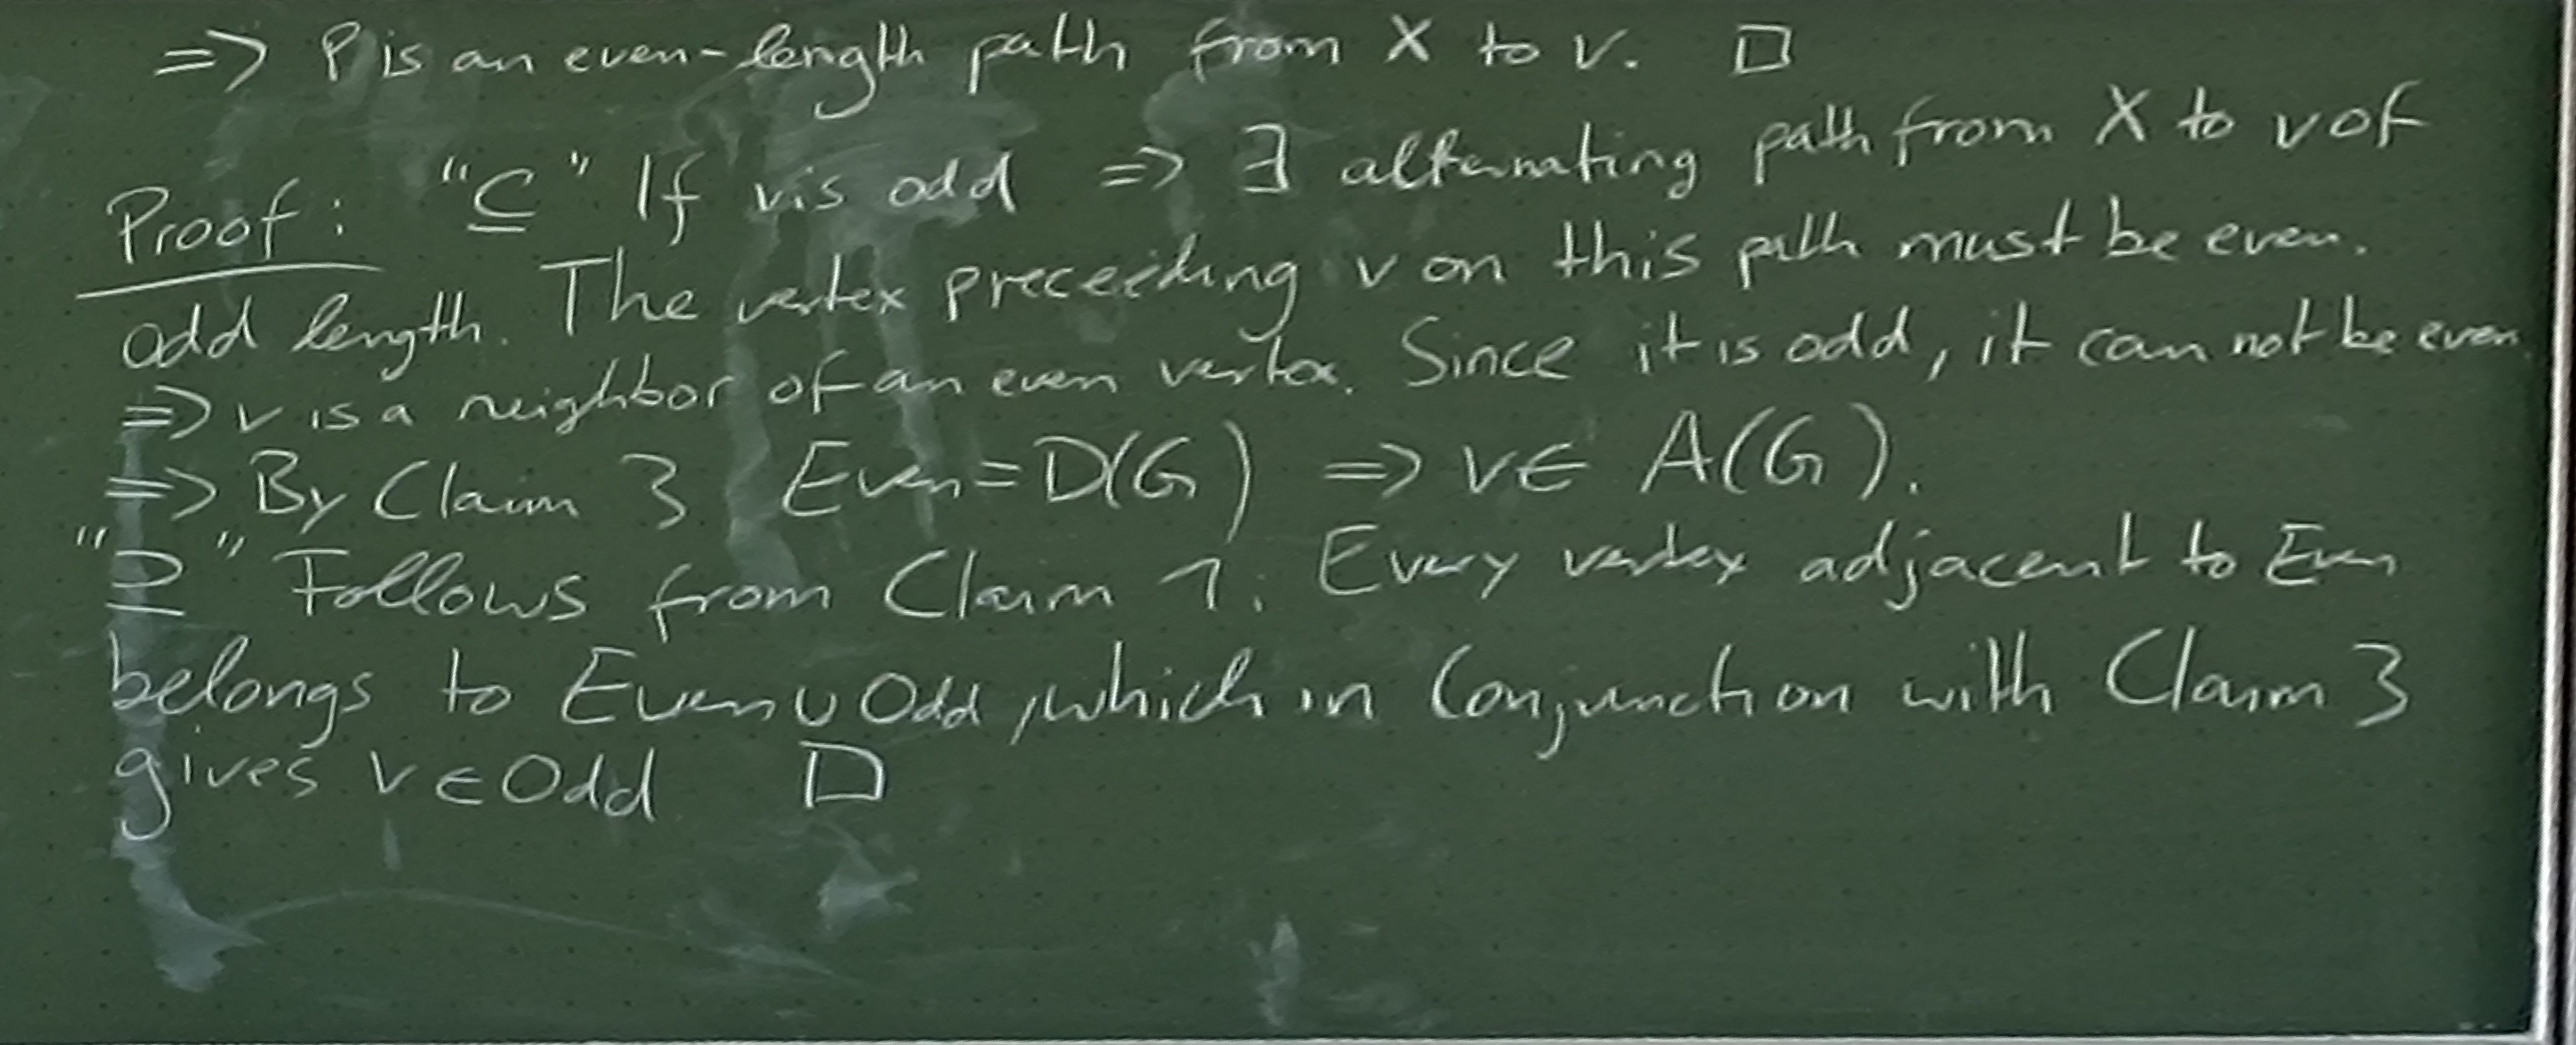 => P is an even-length path from X to v. □
Proof: "⊆" If v is odd => ∃ alternating path from X to v of
odd length. The vertex preceeding v on this path must be even.
=> v is a neighbor of an even vertex. Since it is odd, it can not be even.
=> By Claim 3 Even = D(G) => v ∈ A(G).
"⊇" Follows from Claim 1: Every vertex adjacent to Even
belongs to Even ∪ Odd, which in conjunction with Claim 3
gives v ∈ Odd □